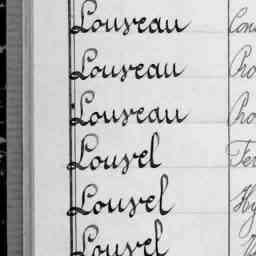 Louveau Con
Louveau Pro
Louveau Pro
Louvel Fer
Louvel Hy
Louvel